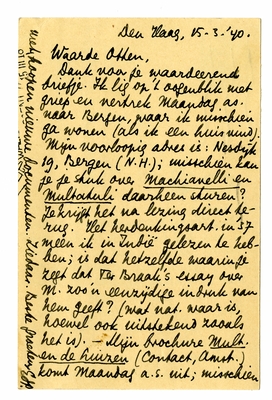 Den Haag, 15-3-'40.
Waarde Otten,
Dank voor je waardeerend
briefje. Ik lig op 't oogenblik met
griep en vertrek Maandag a.s.
naar Bergen, waar ik misschien
ga wonen (als ik een huis vind).
Mijn voorloopig adres is: Nesdijk
19, Bergen (N.H.); misschien kan
je je stuk over Machiavelli en
Multatuli daarheen sturen?
Je krijgt het na lezing direct te-
rug. Het herdenkingsart. in 37
meen ik in Indië gelezen te heb-
ben; is dat hetzelfde waarin je
zegt dat Ter Braak's essay over
M. zoo'n eenzijdige indruk van
hem geeft? (Wat nat. waar is,
hoewel ook uitstekend zooals
het is). — Mijn brochure Mult.
en de luizen (Contact, Amst.)
komt Maandag a.s. uit; misschien
nieuwe documenten. Beste groeten,